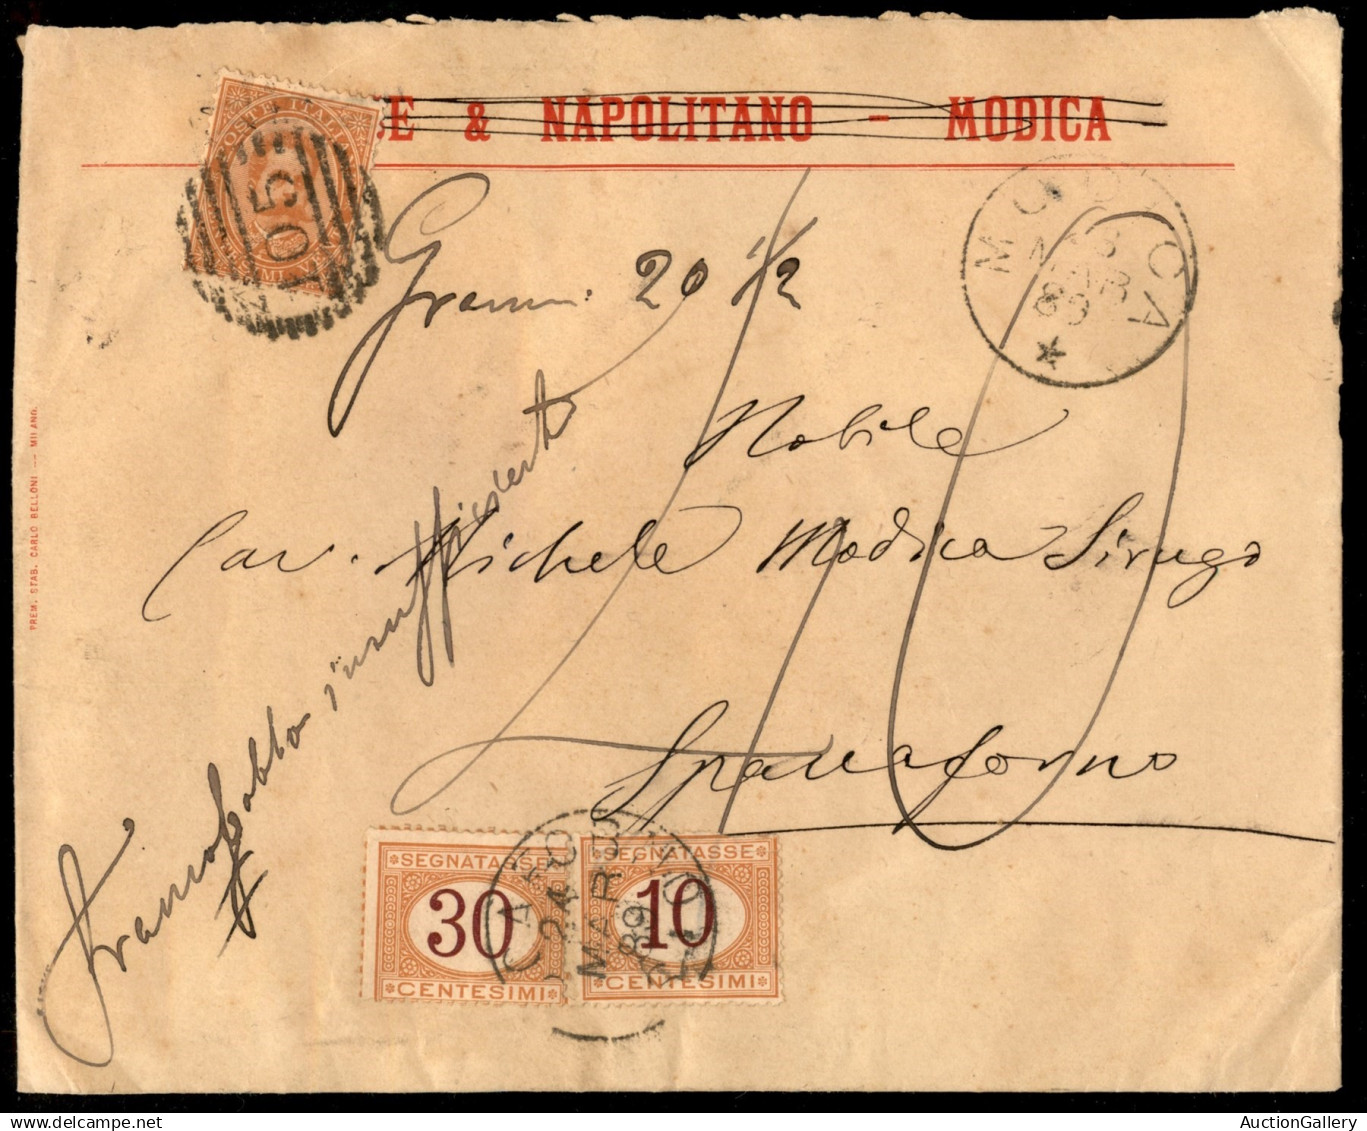 & NAPOLITANO - MODICA
POSTE ITALIANE
VENTI CENTESIMI
1051
MODICA
MAR
89
Gram. 20 1/2
Nobile
Cav. Michele Modica Sirugo
Spaccaforno
Francobollo insufficiente
40
PREM. STAB. CARLO BELLONI — MILANO.
SEGNATASSE
30
CENTESIMI
SEGNATASSE
10
CENTESIMI
24
MAR
89
AuctionGallery